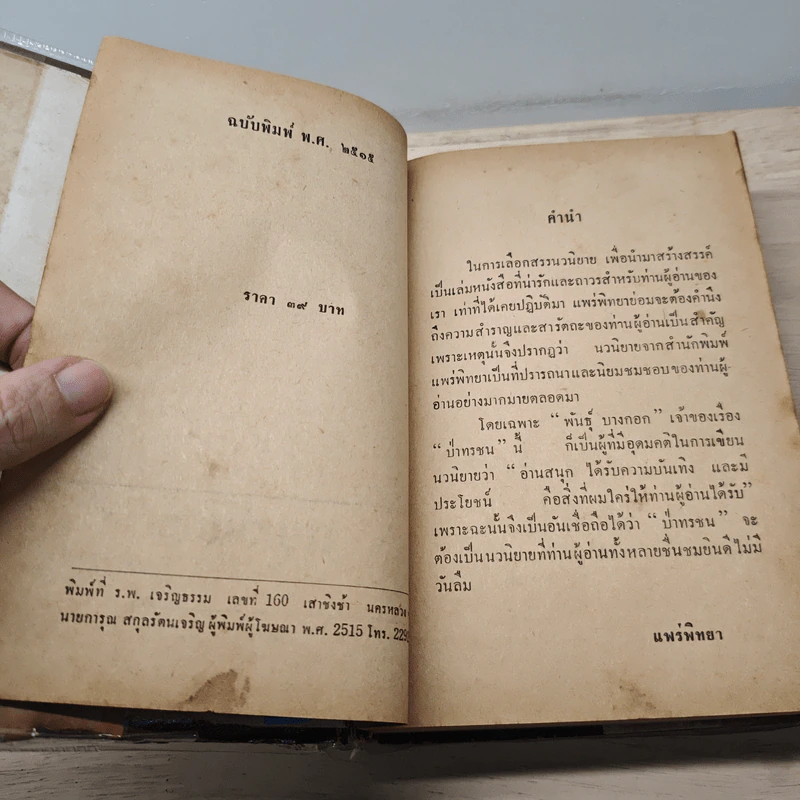 ฉบับพิมพ์ พ.ศ. ๒๕๑๕
ราคา ๓๙ บาท
พิมพ์ที่ ร.พ. เจริญธรรม เลขที่ 160 เสาชิงช้า นครหลวง
นายการุณ สกุลรัตนเจริญ ผู้พิมพ์ผู้โฆษณา พ.ศ. 2515 โทร.
คำนำ
ในการเลือกสรรนวนิยาย เพื่อนำมาสร้างสรรค์
เป็นเล่มหนังสือที่น่ารักและถาวรสำหรับท่านผู้อ่านของ
เรา เท่าที่ได้เคยปฏิบัติมา แพร่พิทยาย่อมจะต้องคำนึง
ถึงความสำราญและสารัตถะของท่านผู้อ่านเป็นสำคัญ
เพราะเหตุนั้นจึงปรากฏว่า นวนิยายจากสำนักพิมพ์
แพร่พิทยาเป็นที่ปรารถนาและนิยมชมชอบของท่านผู้
อ่านอย่างมากมายตลอดมา
โดยเฉพาะ “พันธุ์ บางกอก” เจ้าของเรื่อง
“ป่าทรชน” นี้ ก็เป็นผู้ที่มีอุดมคติในการเขียน
นวนิยายว่า “อ่านสนุก ได้รับความบันเทิง และมี
ประโยชน์ คือสิ่งที่ผมใคร่ให้ท่านผู้อ่านได้รับ”
เพราะฉะนั้นจึงเป็นอันเชื่อถือได้ว่า “ป่าทรชน” จะ
ต้องเป็นนวนิยายที่ท่านผู้อ่านทั้งหลายชื่นชมยินดีไม่มี
วันลืม
แพร่พิทยา